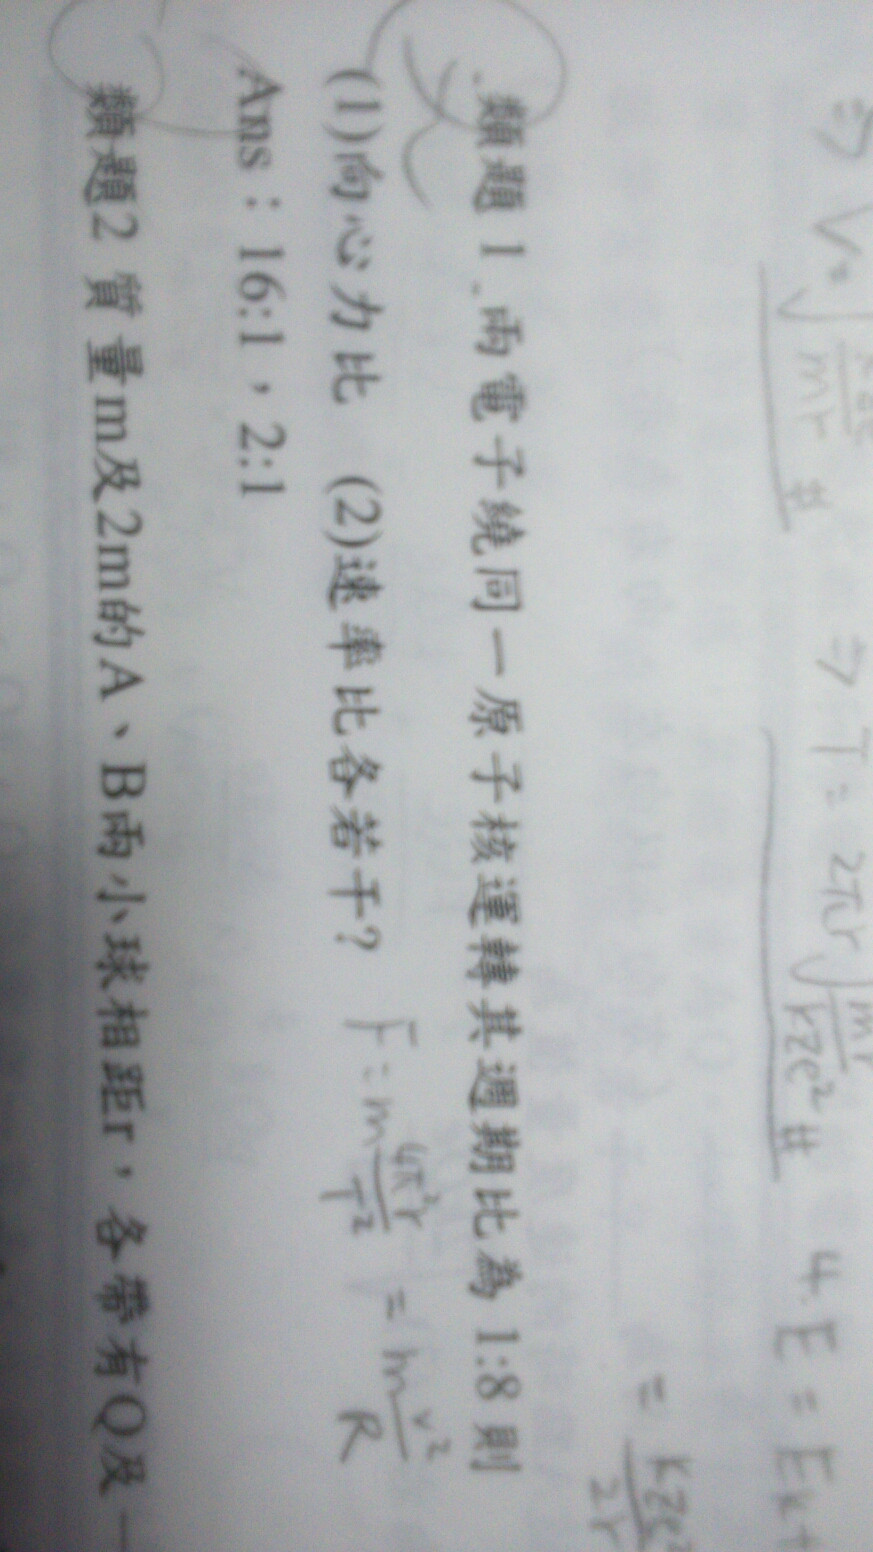 ⇒ V = √(kze²/mr) # ⇒ T = 2πr√(mr/kze²) # 4. E = Ek+
= kze²/2r
類題 1 兩電子繞同一原子核運轉其週期比為 1:8 則
(1)向心力比 (2)速率比各若干? F = m 4π²r/T² = m v²/R
Ans：16:1，2:1
類題2 質量m及2m的A、B兩小球相距r，各帶有Q及一